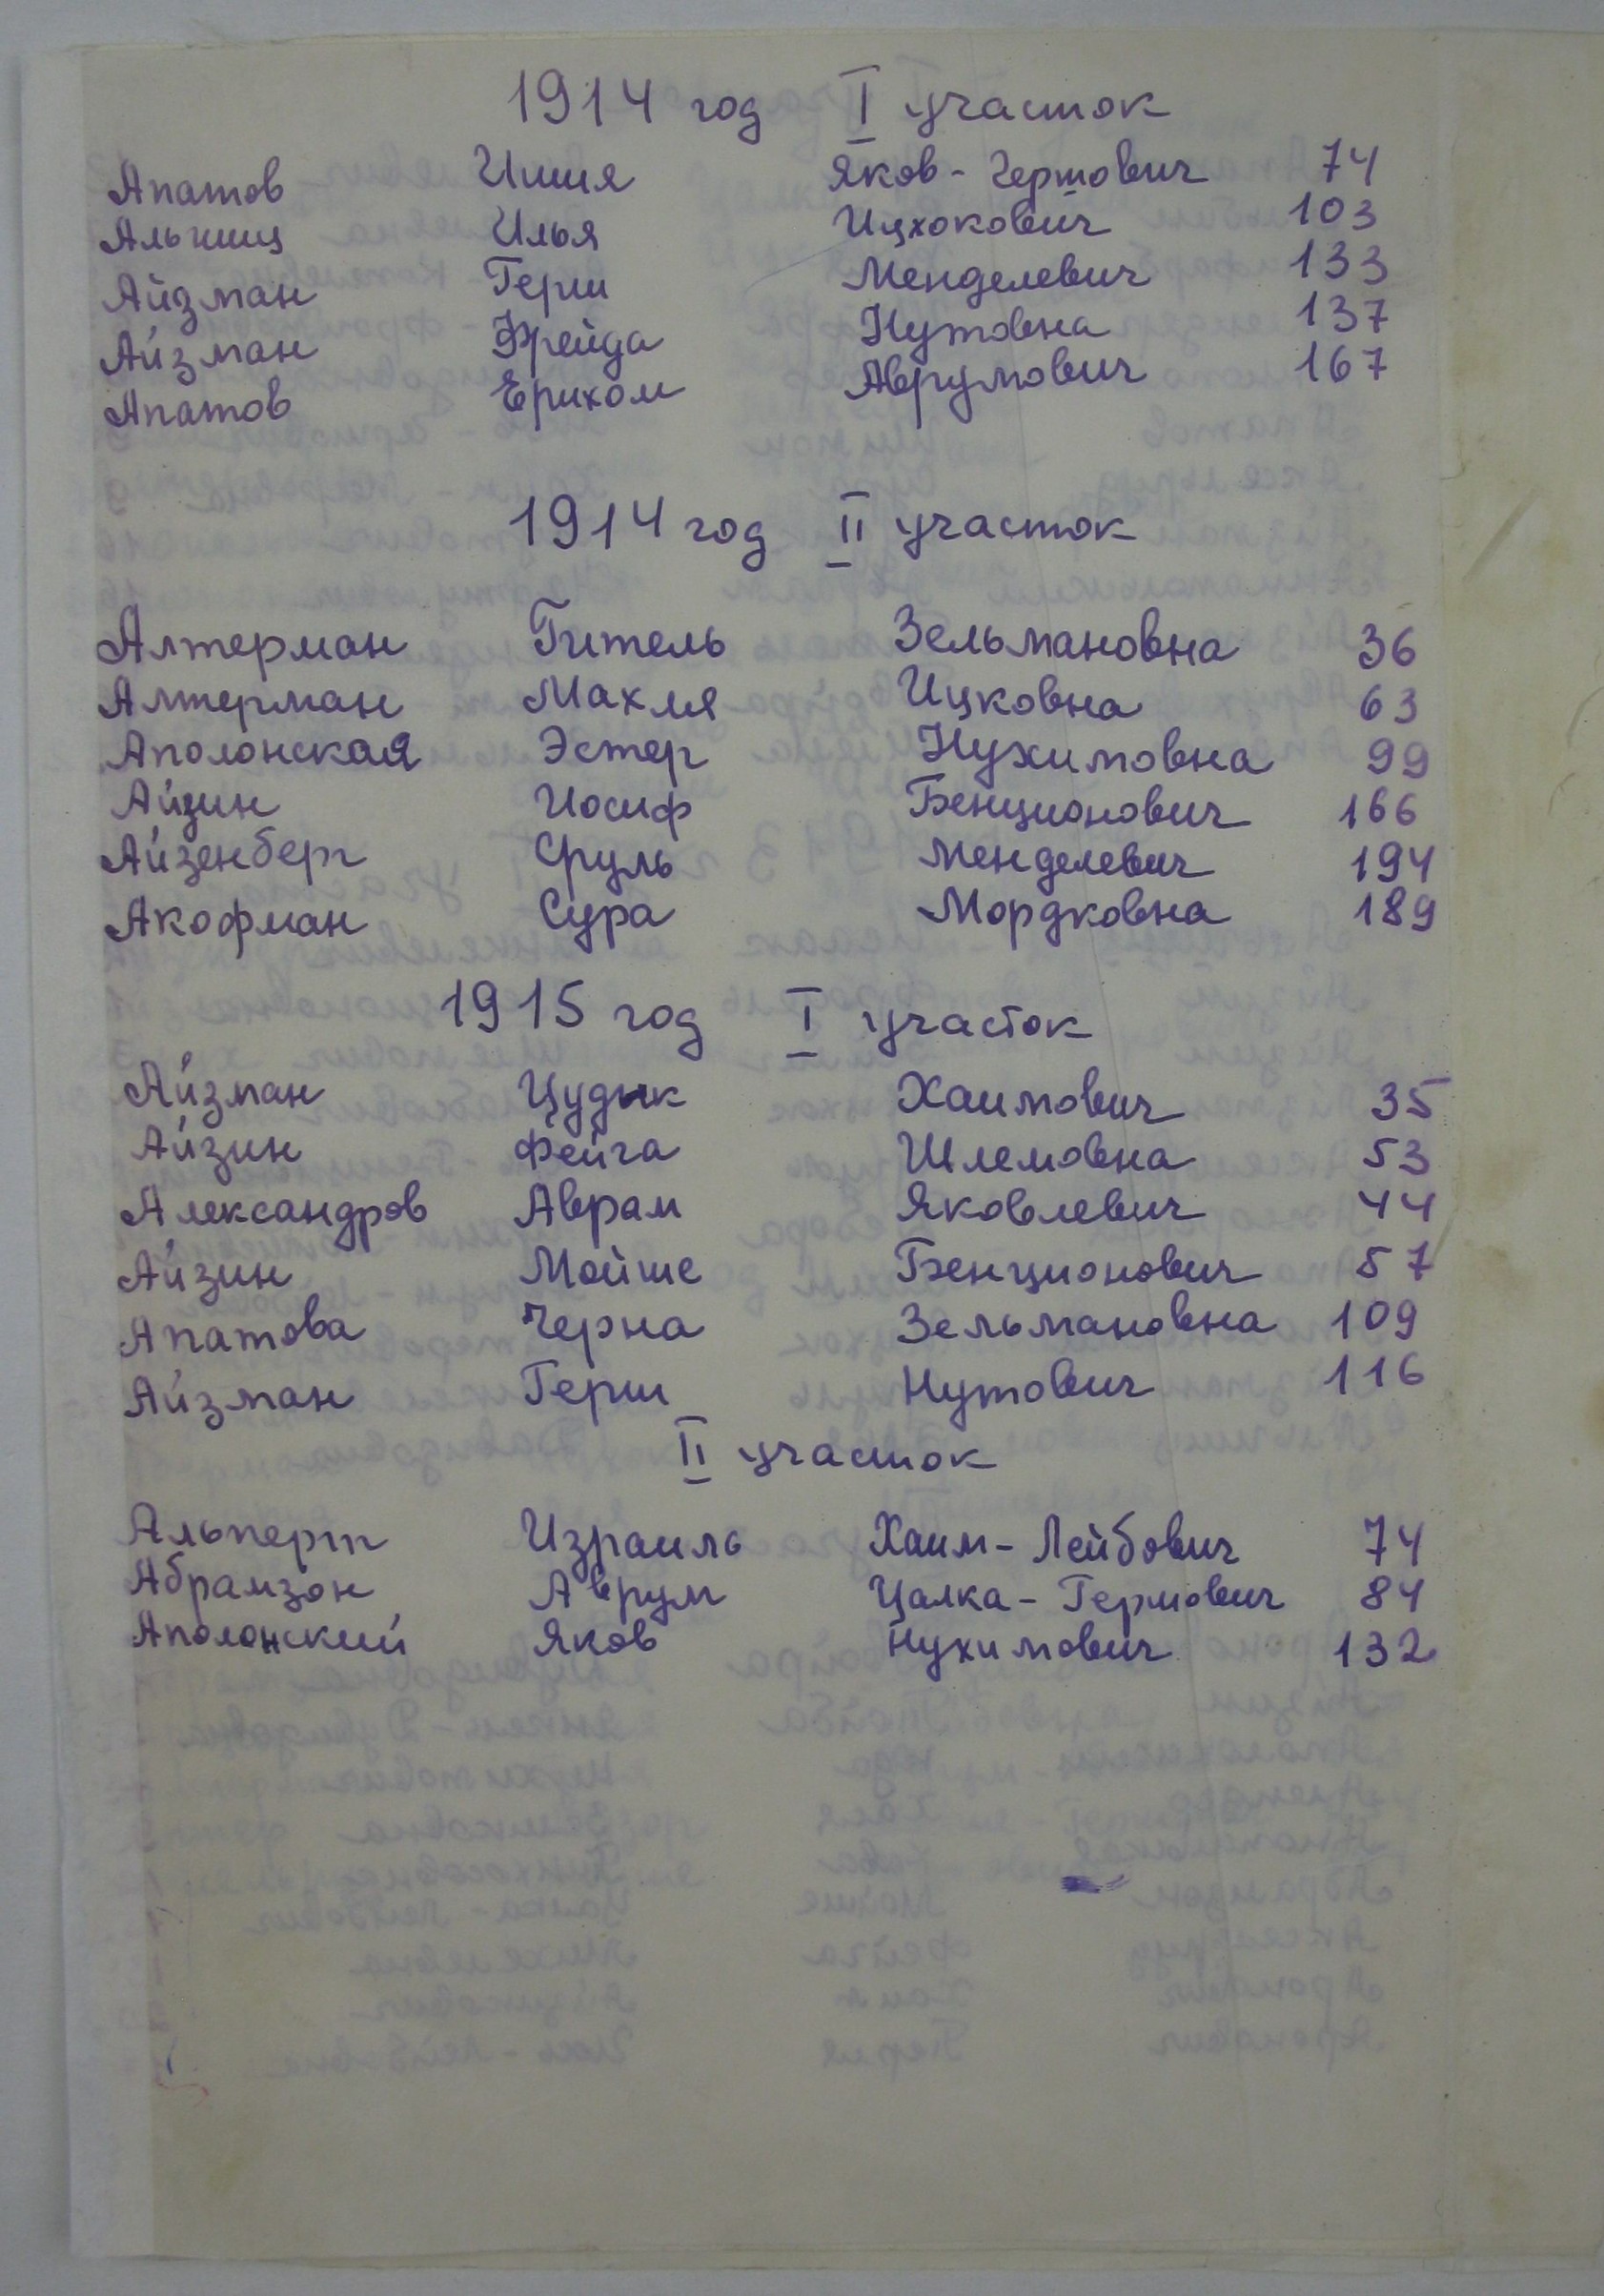 1914 год I участок
Апатов Шия Яков-Гершович 74
Альшиц Илья Ицхокович 103
Айзман Герш Менделевич 133
Айзман Фрейда Нутовна 137
Апатов Ерихом Аврумович 167
1914 год II участок
Алтерман Гитель Зельмановна 36
Алтерман Махля Ицковна 63
Аполонская Эстер Нухимовна 99
Айзин Иосиф Бенционович 166
Айзенберг Сруль Менделевич 194
Акофман Сура Мордковна 189
1915 год I участок
Айзман Цудык Хаимович 35
Айзин Фейга Шлемовна 53
Александров Аврам Яковлевич 44
Айзин Мойше Бенционович 57
Апатова Черна Зельмановна 109
Айзман Герш Нутович 116
II участок
Альперт Израиль Хаим-Лейбович 74
Абрамзон Аврум Цалка-Гершович 84
Аполонский Яков Нухимович 132